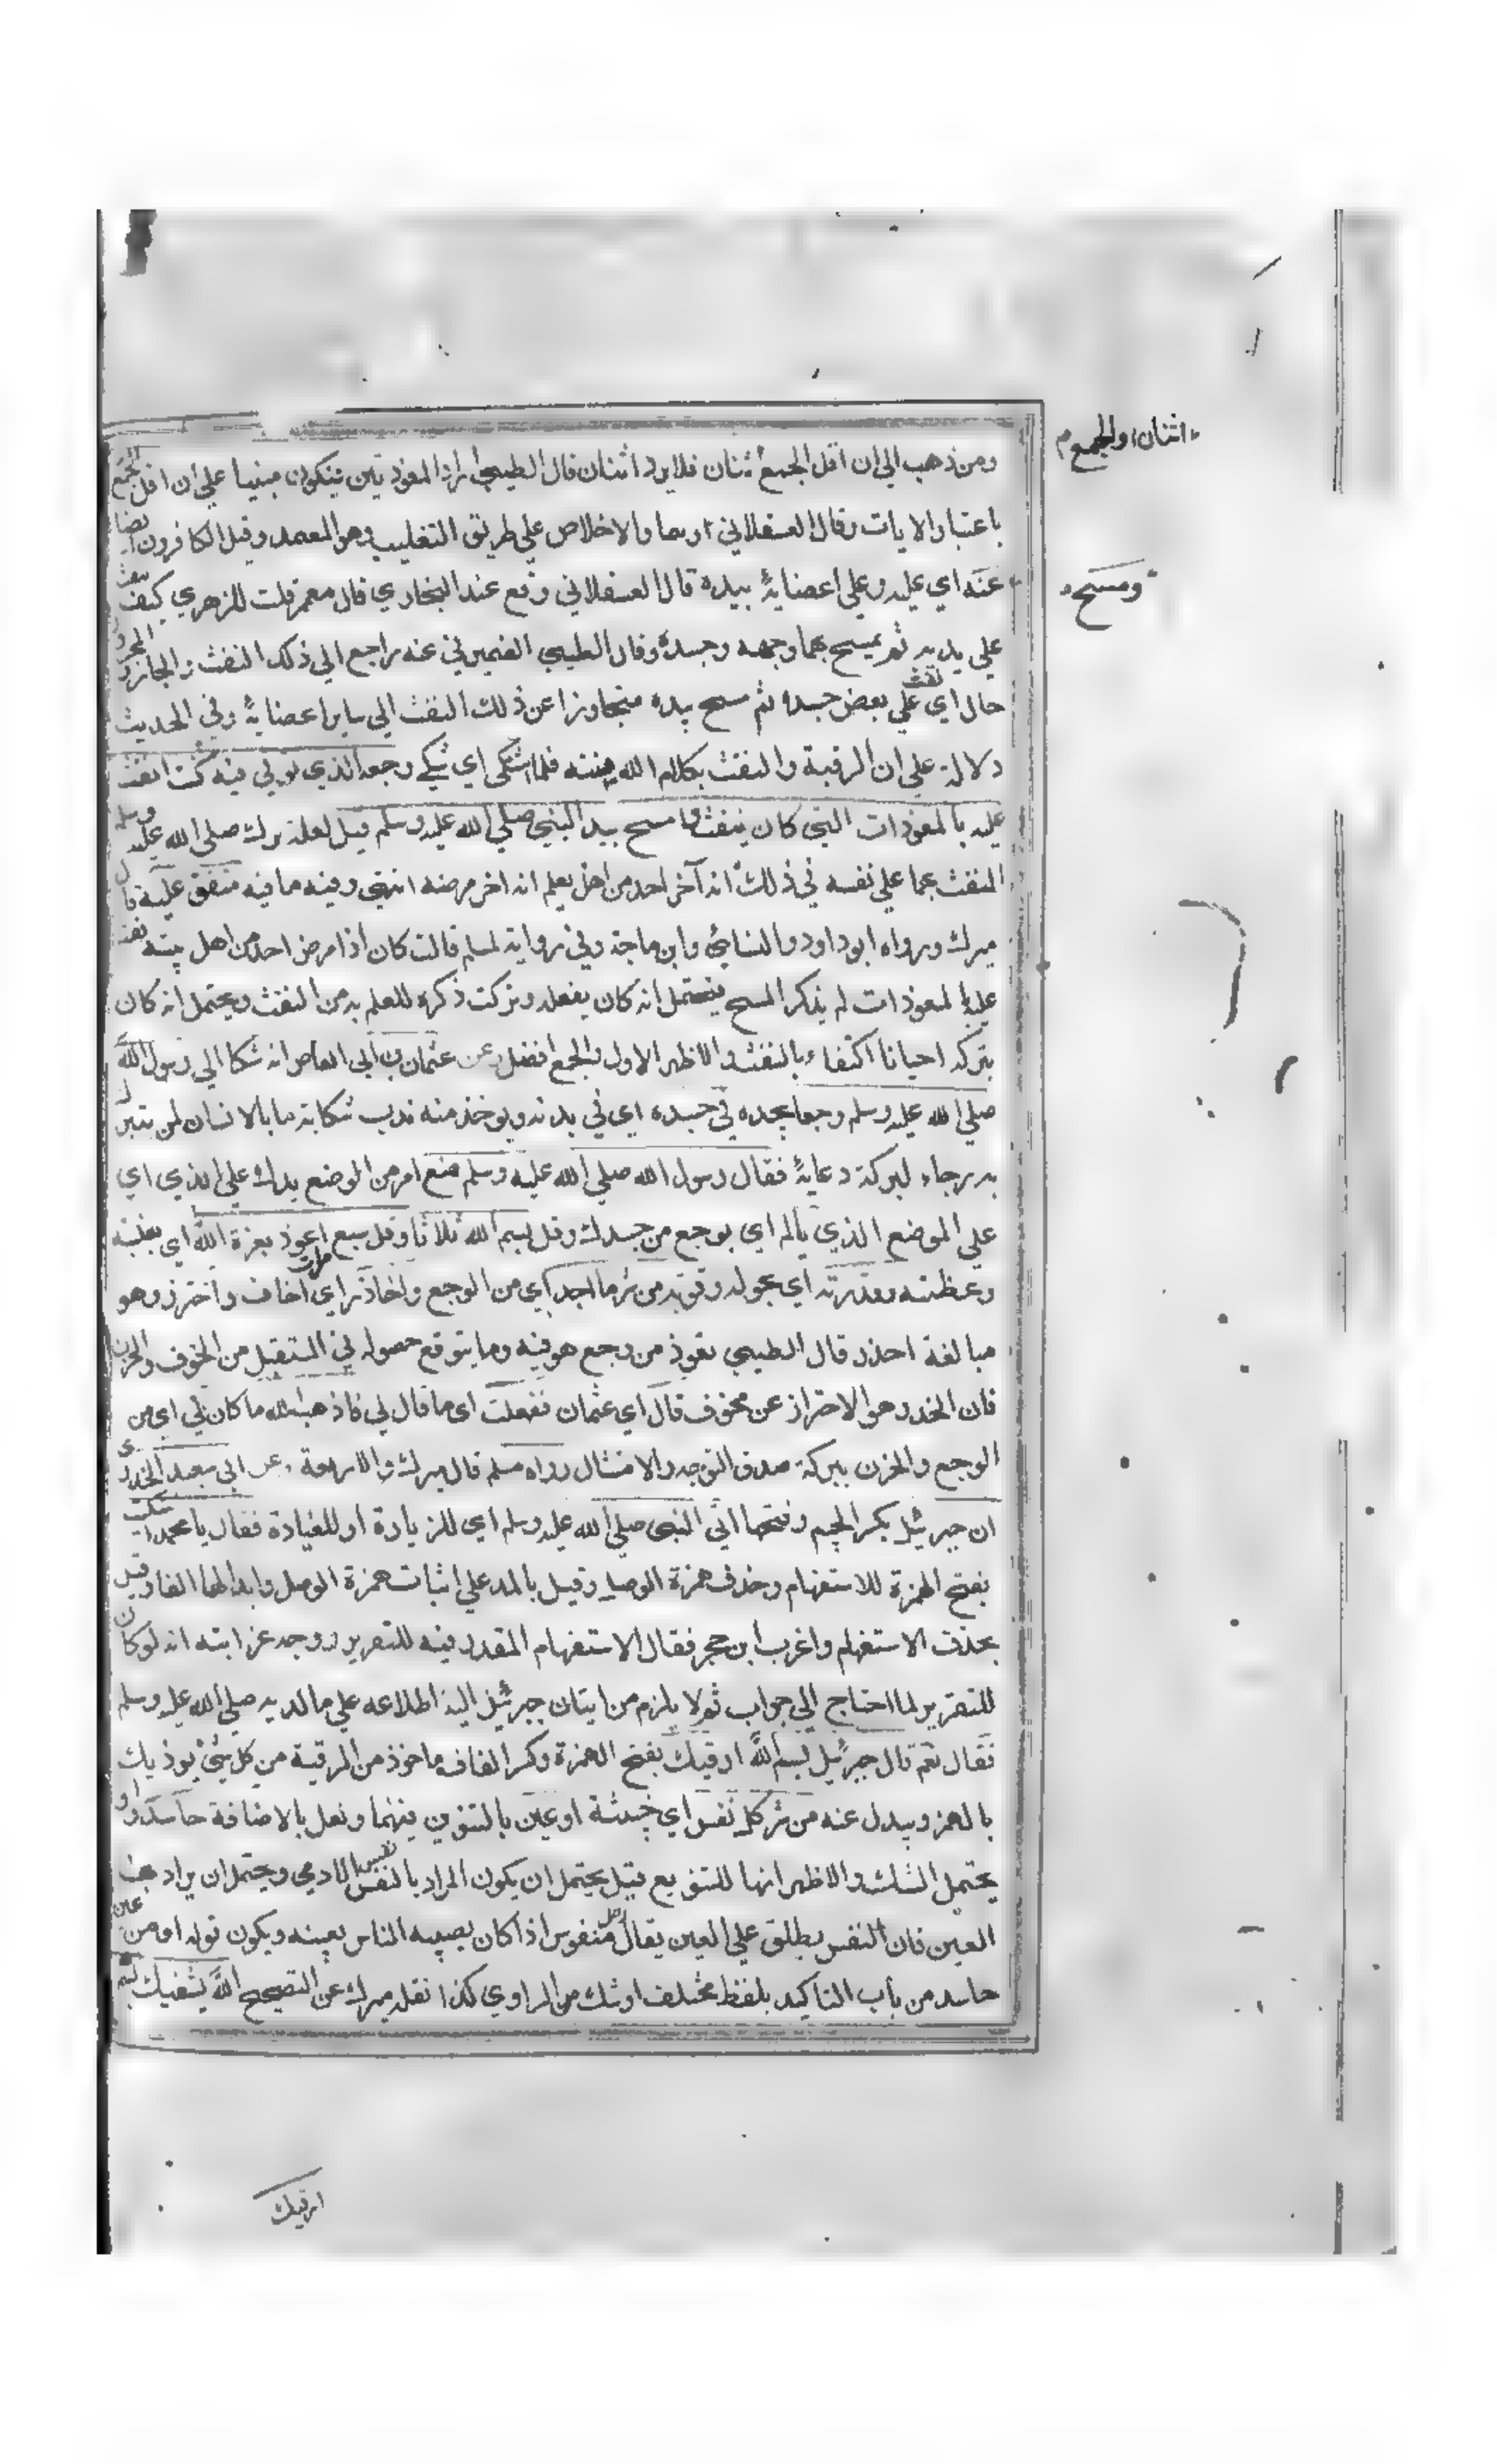 ومن ذهب الى ان اقل الجمع اثنان فلا يرد اثنان قال الطيبي اراد المعوذتين فيكون مبنيا علي ان اقل الجمع
اثنان او الجمع م
باعتبار الايات وقال العسقلاني او هما والاخلاص علي طريق التغليب وهو المعتمد وقيل الكافرون ايضا
ومسح
عنه اي عليه وعلي اعضايه بيده قال العسقلاني وقع عند البخاري قال معمر قلت للزهري كيف ينفث
علي يديه ثم يمسح بهما وجهه وجسده وقال الطيبي الضمير في عنه راجع الي ذلك النفث والجار والمجرور
حال اي نفث علي بعض جسده ثم مسح بيده متجاوزا عن ذلك النفث الي ساير اعضايه وفي الحديث
دلالة علي ان الرقية والنفث بكلام الله سنته فلما اشتكى اي شكي وجعه الذي توفي فيه كنت انفث
عليه بالمعوذات التي كان ينفث وامسح بيد النبي صلي الله عليه وسلم قيل لعله ترك صلي الله عليه وسلم
النفث بهما علي نفسه في ذلك انه آخر احد من اهل يعلم انه اخر مرضه انتهي وفيه ما فيه متفق عليه قال
ميرك ورواه ابو داود والنسايي وابن ماجة وفي رواية لمسلم قالت كان اذا مرض احد من اهل بيته نفث
عليه بالمعوذات لم يذكر المسح فيحتمل انه كان يفعله وتركت ذكره للعلم به من النفث ويحتمل انه كان
يتركه احيانا اكتفاء بالنفث والاظهر الاول والجمع افضل وعن عثمان بن ابي العاص انه شكا الي رسول الله
صلي الله عليه وسلم وجعا يجده في جسده اي في بدنه ويوخذ منه ندب شكاية ما بالانسان لمن يتبرك
به رجاء لبركة دعايه فقال رسول الله صلي الله عليه وسلم ضع امر من الوضع يدك علي الذي اي
علي الموضع الذي يالم اي يوجع من جسدك وقل بسم الله ثلاثا وقل سبع مرات اعوذ بعزة الله اي بغلبته
وعظمته وقدرته اي بحوله وقوته من شر ما اجد اي من الوجع واحاذر اي اخاف واحترز وهو
مبالغة احذر قال الطيبي تعوذ من وجع هو فيه وما يتوقع حصوله في المستقبل من الخوف والحزن
فان الحذر هو الاحتراز عن مخوف قال اي عثمان ففعلت اى ما قال لي فاذهب الله ما كان بي اي من
الوجع والحزن ببركة صدق التوجه والامتثال رواه مسلم قال ميرك والاربعة وعن ابي سعيد الخدري
ان جبرئيل بكسر الجيم وفتحها اتى النبي صلي الله عليه وسلم اي للزيارة او للعيادة فقال يا محمد اشتكيت
بفتح الهمزة للاستفهام وحذف همزة الوصل وقيل بالمد علي اثبات همزة الوصل وابدالها الفا وقيل
بحذف الاستفهام واغرب ابن حجر فقال الاستفهام المقدر فيه للتقرير ووجه غرابته انه لو كان
للتقرير لما احتاج الي جواب ثم لا يلزم من اتيان جبرئيل اليه اطلاعه علي ما لديه صلي الله عليه وسلم
فقال نعم قال جبرئيل بسم الله ارقيك بفتح الهمزة وكسر القاف ماخوذ من الرقية من كل شيئ يوذيك
بالهمز ويبدل عنه من شر كل نفس اي خبيثة او عين بالتنوين فيهما ونعل بالاضافة حاسد او
يحتمل الشك والاظهر انها للتنويع قيل يحتمل ان يكون المراد بالنفس نفس الادمي ويحتمل ان يراد بها
العين فان النفس يطلق علي العين يقال رجل منفوس اذا كان يصيب الناس بعينه ويكون قوله او من عين
حاسد من باب التاكيد بلفظ مختلف او شك من الراوي كذا نقله ميرك عن التصحيح الله يشفيك بسم
ارقيك